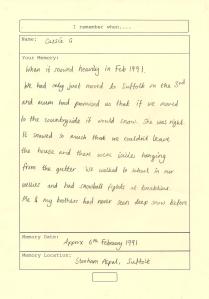 I remember when....
Name: Cassie G
Your Memory:
When it snowed heavily in Feb 1991.
We had only just moved to Suffolk on the 3rd
and mum had promised us that if we moved
to the countryside it would snow. She was right.
It snowed so much that we couldn't leave
the house and there were icicles hanging
from the gutter. We walked to school in our
wellies and had snowball fights at breaktime.
Me & my brother had never seen deep snow before
Memory Date: Approx 6th February 1991
Memory Location: Stonham Aspal, Suffolk